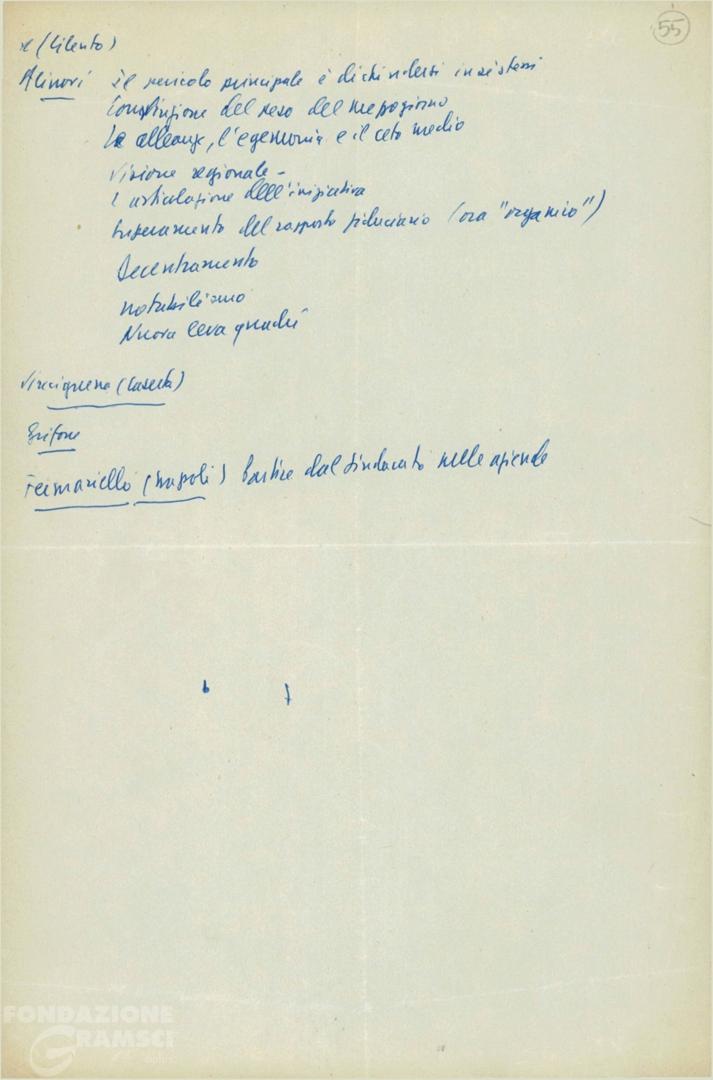 55
(Cilento)
Alinovi Il pericolo principale è di chiudersi in se stessi
Constatazione del peso del mezzogiorno
Le alleanze, l'egemonia e il ceto medio
Visione regionale -
l'articolazione dell'iniziativa
Superamento del rapporto fiduciario (ora "organico")
Decentramento
notabilismo
Nuova leva quadri
Vinciguerra (Caserta)
Grifone
Fermariello (Napoli) Partire dal sindacato nelle aziende
FONDAZIONE
GRAMSCI